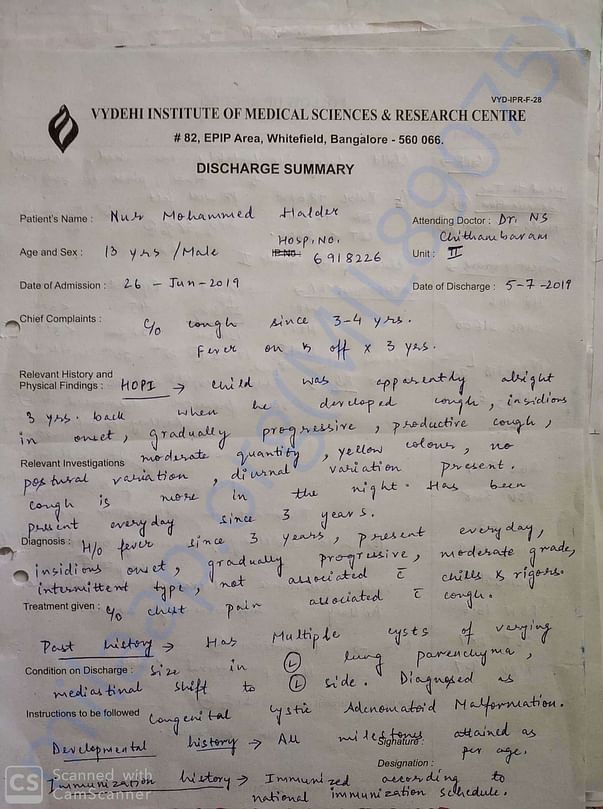 VYD-IPR-F-28
VYDEHI INSTITUTE OF MEDICAL SCIENCES & RESEARCH CENTRE
# 82, EPIP Area, Whitefield, Bangalore - 560 066.
DISCHARGE SUMMARY
Patient's Name : Nur Mohammed Halder
Attending Doctor : Dr. NS Chithambaram
Age and Sex : 13 yrs / Male
HOSP. NO.
IP.NO. 6918226
Unit : II
Date of Admission : 26 - Jun - 2019
Date of Discharge : 5-7-2019
Chief Complaints : c/o cough since 3-4 yrs.
Fever on & off x 3 yrs.
Relevant History and
Physical Findings : HOPI → child was apparently alright
3 yrs. back when he developed cough, insidious
in onset, gradually progressive, productive cough,
moderate quantity, yellow colour, no
Relevant Investigations
postural variation, diurnal variation present.
cough is more in the night. Has been
present everyday since 3 years.
Diagnosis : H/o fever since 3 years, present everyday,
insidious onset, gradually progressive, moderate grade,
intermittent type, not associated c̄ chills & rigors.
Treatment given : c/o chest pain associated c̄ cough.
Past history → Has Multiple cysts of varying
Condition on Discharge : size in (L) lung parenchyma,
mediastinal shift to (L) side. Diagnosed as
Instructions to be followed Congenital cystic Adenomatoid Malformation.
Developmental history → All milestones attained as
Signature : per age.
Designation :
Immunization history → Immunized according to
national immunization schedule.
CS Scanned with
CamScanner